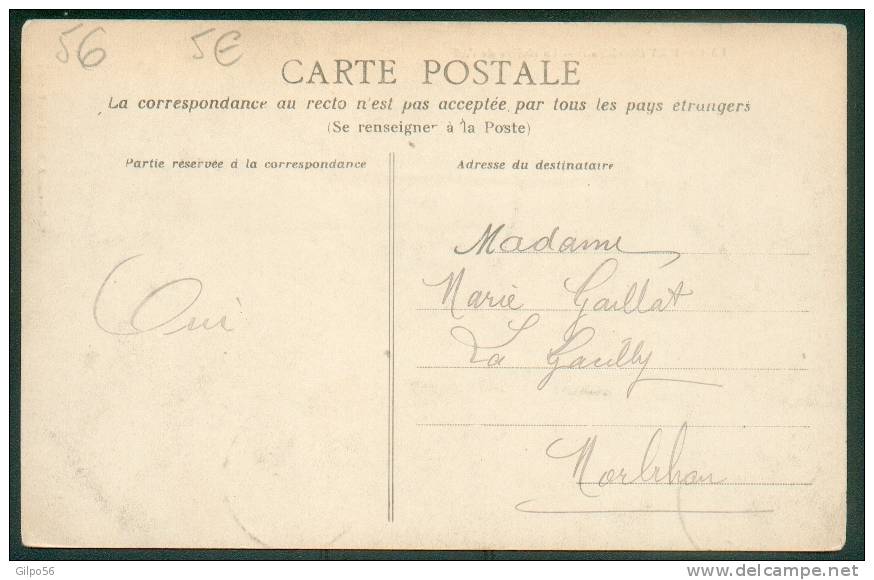 56 5E
CARTE POSTALE
La correspondance au recto n'est pas acceptée par tous les pays etrangers
(Se renseigner à la Poste)
Partie réservée à la correspondance
Adresse du destinataire
Madame
Marie Gaillat
La Gacilly
Oui
Morbihan
Gilpo56
www.delcampe.net